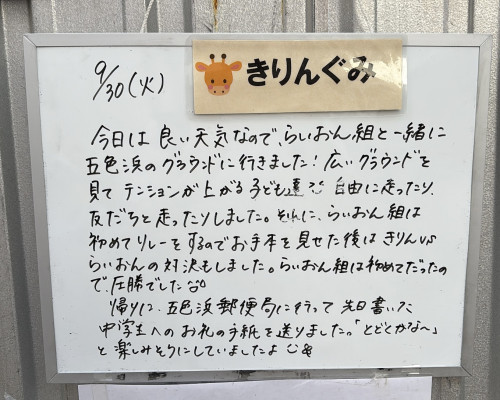 9/30(火)
きりんぐみ
今日は良い天気なので、らいおん組と一緒に
五色浜のグラウンドに行きました!広いグラウンドを
見てテンションが上がる子ども達で自由に走ったり、
友だちと走ったりしました。それに、らいおん組は
初めてリレーをするのでお手本を見せた後はきりんvs
らいおんの対決もしました。らいおん組は初めてだったの
で、圧勝でした
帰りに、五色浜郵便局に行って先日書いた
中学生へのお礼の手紙を送りました。「とどくかな〜」
と楽しみそうにしていましたよ